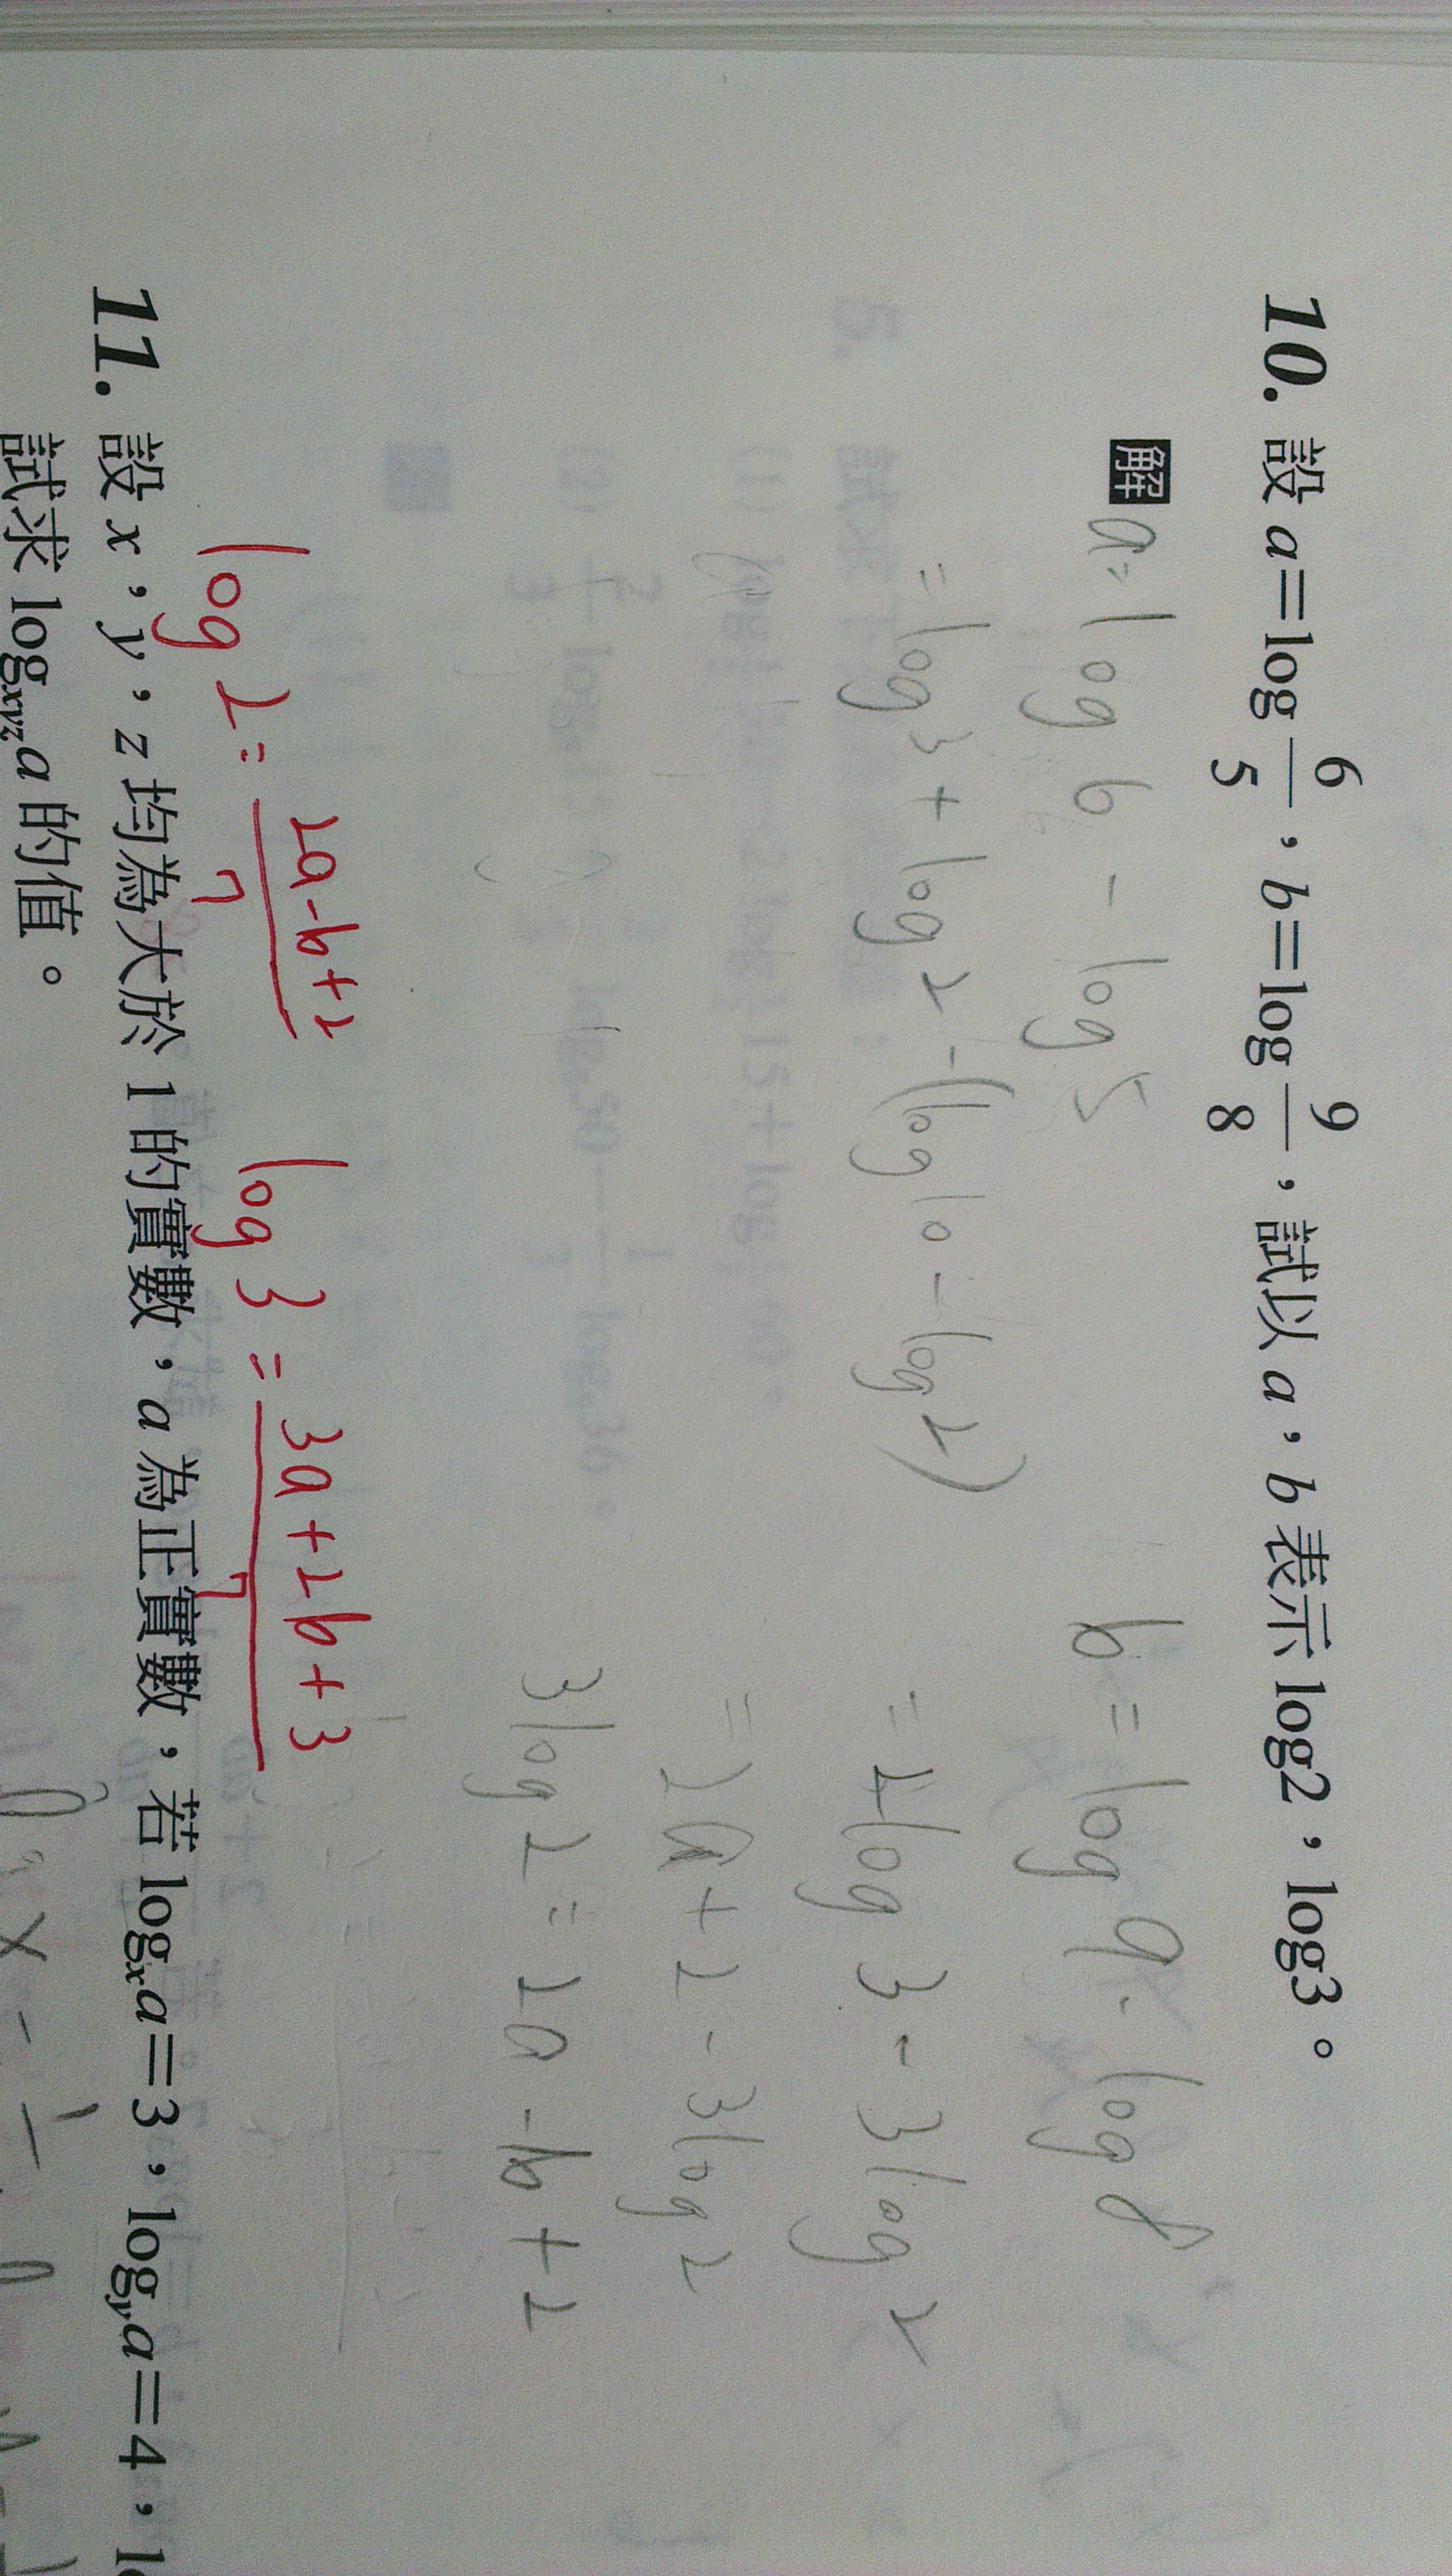 10. 設 a=log 6/5,b=log 9/8,試以 a,b 表示 log2,log3。
解
a=log 6 - log 5
=log 3 + log 2 -(log 10 - log 2)
b = log 9 - log 8
= 2log 3 - 3log 2
= 2a + 2 - 3log 2
3log 2 = 2a - b + 2
log 2= (2a-b+2)/7
log 3 = (3a+2b+3)/7
11. 設 x,y,z 均為大於 1 的實數,a 為正實數,若 logₓa=3,logᵧa=4,
試求 log_xyz a 的值。